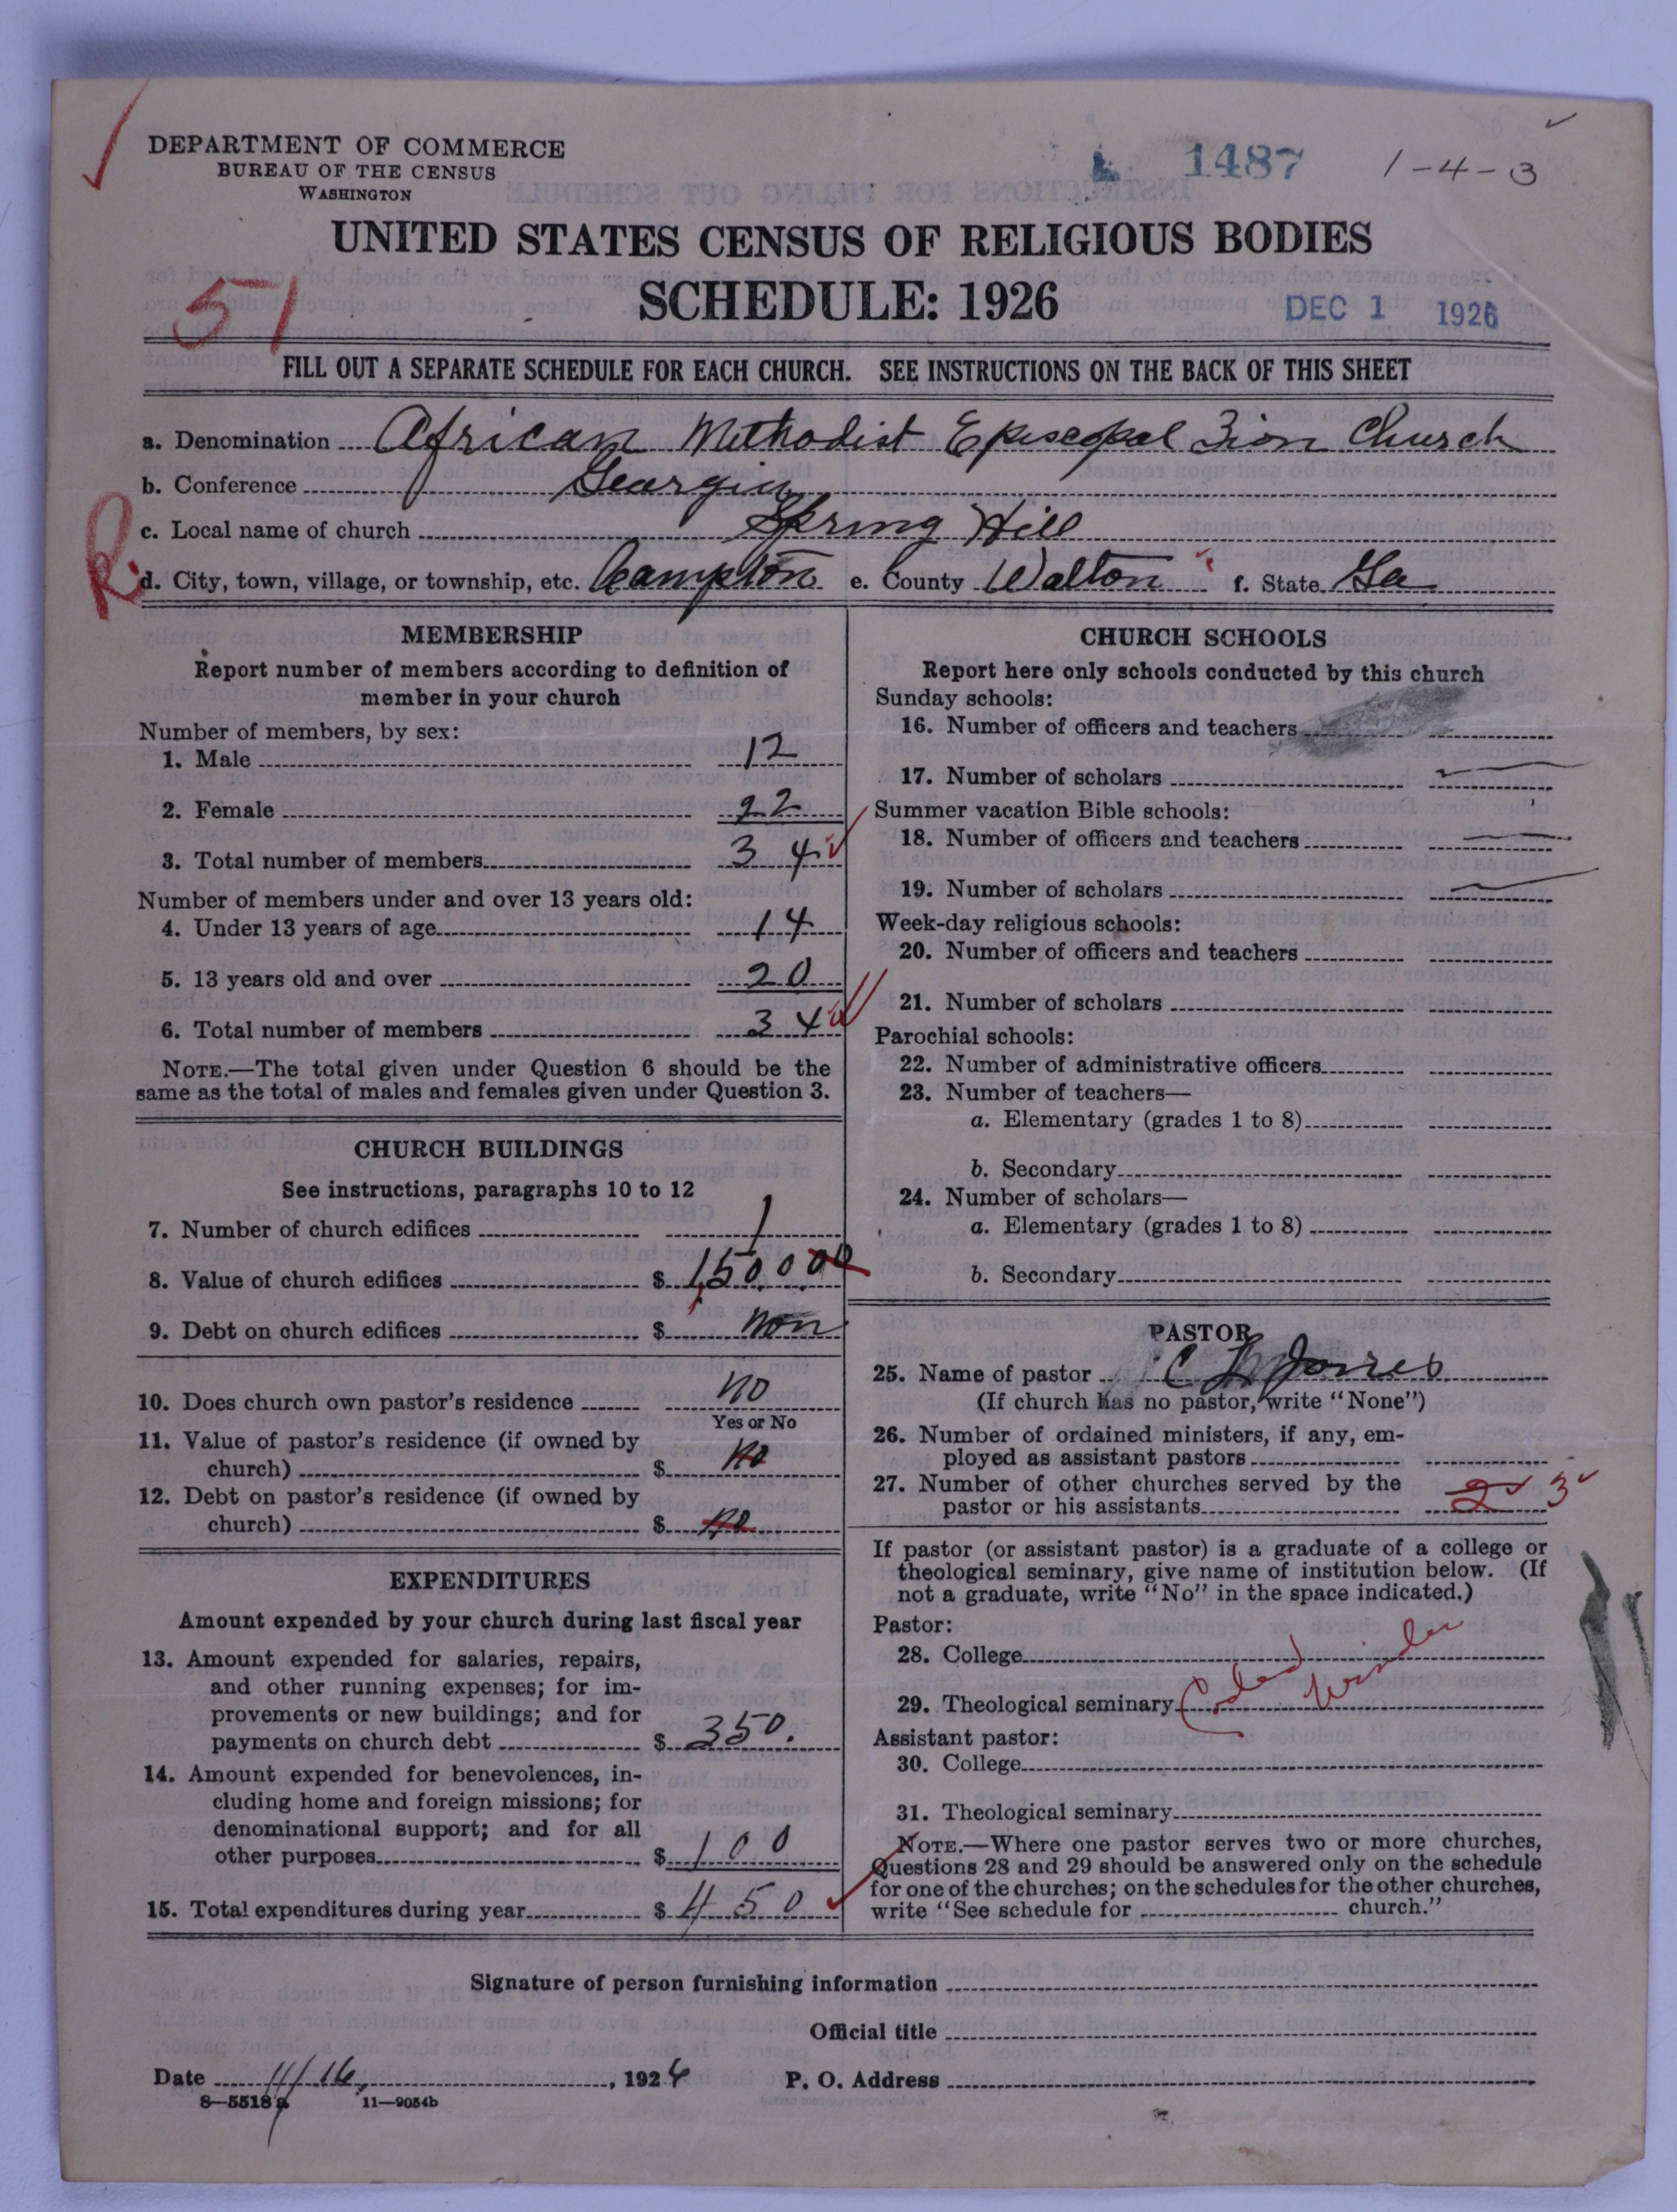 DEPARTMENT OF COMMERCE
BUREAU OF THE CENSUS
WASHINGTON
1487
1-4-3
UNITED STATES CENSUS OF RELIGIOUS BODIES
SCHEDULE: 1926
51
DEC 1 1926
FILL OUT A SEPARATE SCHEDULE FOR EACH CHURCH. SEE INSTRUCTIONS ON THE BACK OF THIS SHEET
a. Denomination African Methodist Episcopal Zion Church
b. Conference Georgia
R
c. Local name of church Spring Hill
d. City, town, village, or township, etc. Campton e. County Walton f. State Ga
MEMBERSHIP
Report number of members according to definition of
member in your church
Number of members, by sex:
1. Male 12
2. Female 22
3. Total number of members 34
Number of members under and over 13 years old:
4. Under 13 years of age 14
5. 13 years old and over 20
6. Total number of members 34
NOTE.—The total given under Question 6 should be the
same as the total of males and females given under Question 3.
CHURCH BUILDINGS
See instructions, paragraphs 10 to 12
7. Number of church edifices 1
8. Value of church edifices $ 1,500.00
9. Debt on church edifices $ Non
10. Does church own pastor's residence no
Yes or No
11. Value of pastor's residence (if owned by
church) $ no
12. Debt on pastor's residence (if owned by
church) $ no
EXPENDITURES
Amount expended by your church during last fiscal year
13. Amount expended for salaries, repairs,
and other running expenses; for im-
provements or new buildings; and for
payments on church debt $ 350.
14. Amount expended for benevolences, in-
cluding home and foreign missions; for
denominational support; and for all
other purposes $ 100
15. Total expenditures during year $ 450
CHURCH SCHOOLS
Report here only schools conducted by this church
Sunday schools:
16. Number of officers and teachers
17. Number of scholars —
Summer vacation Bible schools:
18. Number of officers and teachers —
19. Number of scholars —
Week-day religious schools:
20. Number of officers and teachers
21. Number of scholars
Parochial schools:
22. Number of administrative officers
23. Number of teachers—
a. Elementary (grades 1 to 8)
b. Secondary
24. Number of scholars—
a. Elementary (grades 1 to 8)
b. Secondary
PASTOR
25. Name of pastor C Jones
(If church has no pastor, write "None")
26. Number of ordained ministers, if any, em-
ployed as assistant pastors
27. Number of other churches served by the
pastor or his assistants 2 3
If pastor (or assistant pastor) is a graduate of a college or
theological seminary, give name of institution below. (If
not a graduate, write "No" in the space indicated.)
Pastor:
28. College
29. Theological seminary
Assistant pastor:
30. College
31. Theological seminary
NOTE.—Where one pastor serves two or more churches,
Questions 28 and 29 should be answered only on the schedule
for one of the churches; on the schedules for the other churches,
write "See schedule for church."
Signature of person furnishing information
Official title
Date 11/16, 1926 P. O. Address
8—5518 a 11—9054b